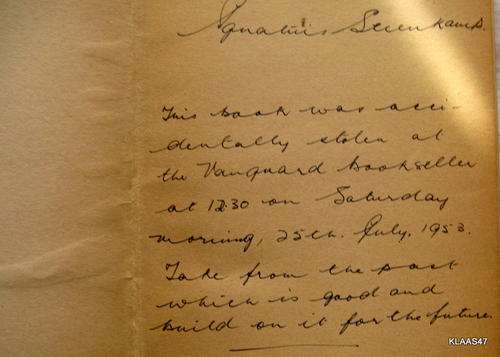 Ignatius
This book was acci-
dentally stolen at
the Vanguard bookseller
at 12.30 on Saturday
morning, 25th. July, 1953.
Take from the past
which is good and
build on it for the future.
KLAAS47